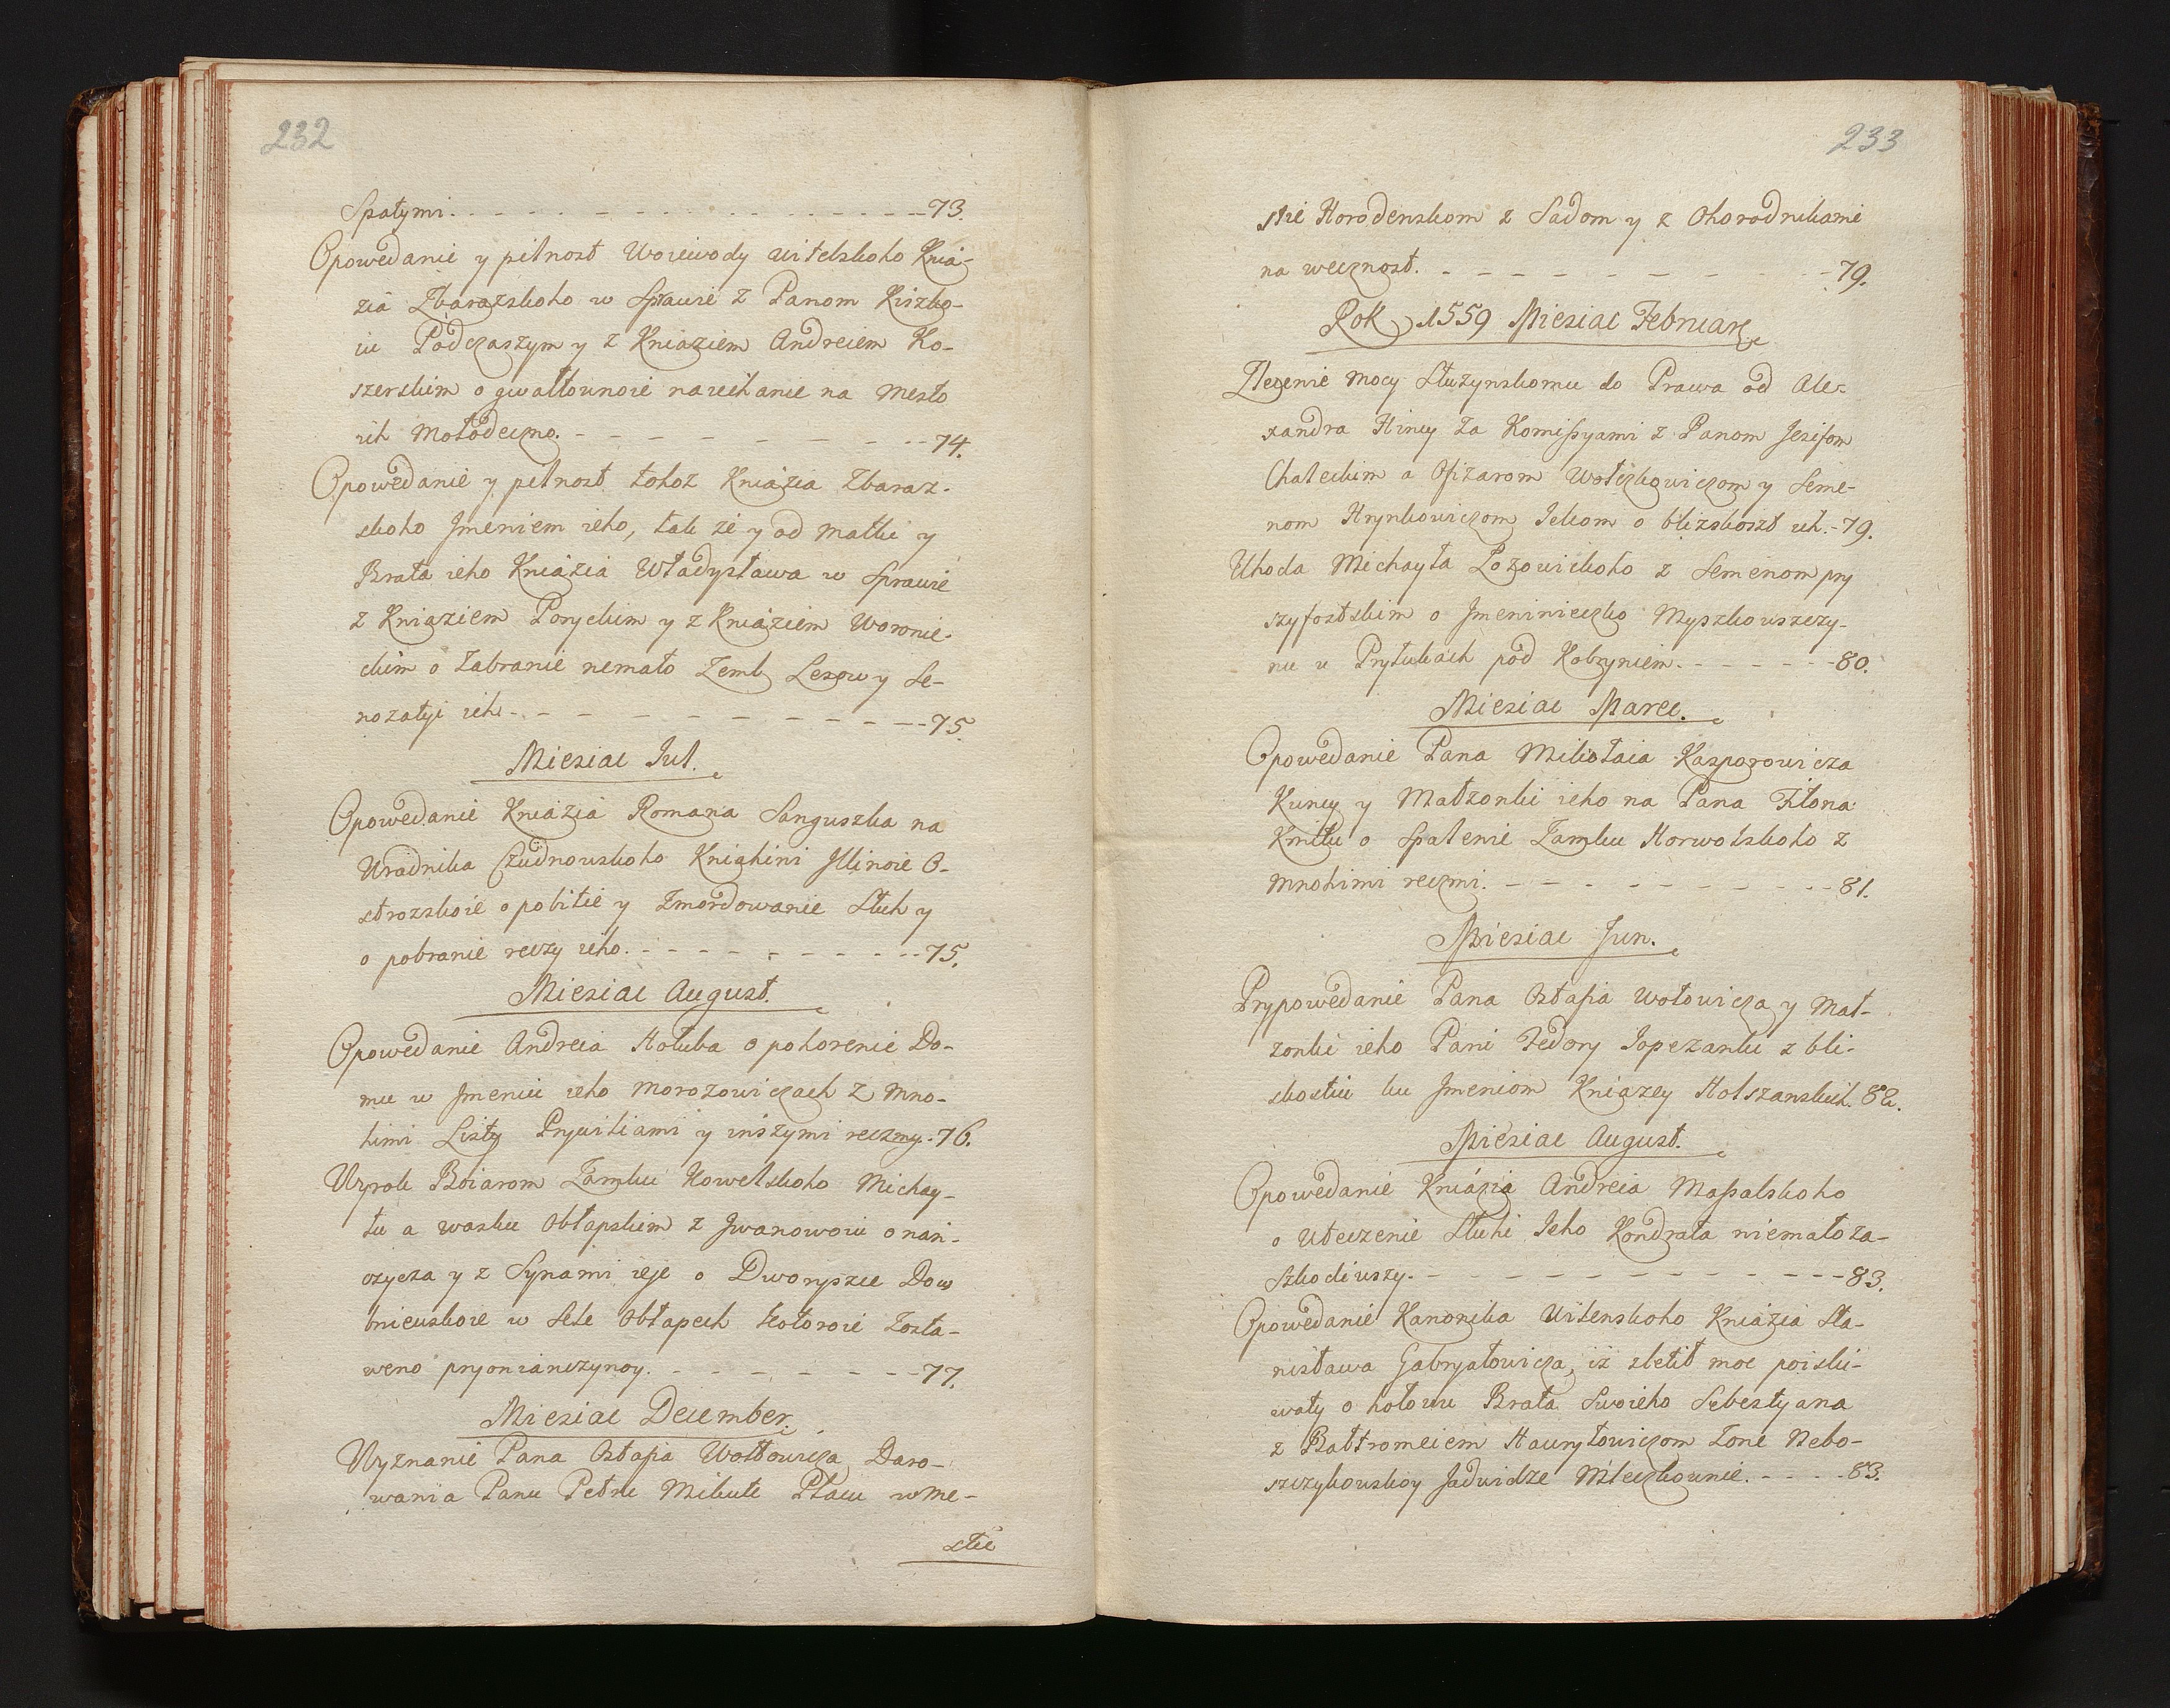 232
Spałymi. - - - - - - - - - - 73.
Opowedanie y pilnost Woiewody Witebskoho Knia-
zia Zbarazskoho w Sprawie z Panom Kiszko-
iu Podczaszym y z Kniaziem Andreiem Ko-
szerskim o gwałtownoie naiechanie na Mesto
ich Mołodeczno. - - - - - - - - 74.
Opowedanie y pilnost tohoz Kniazia Zbaraz-
skoho Jmeniem ieho, tak ze y od Matki y
Brata ieho Kniazia Władysława w Sprawie
z Kniaziem Poryckim y z Kniaziem Woronie-
ckim o Zabranie nemało Zeml Lesow y Se-
nozatyi ich. - - - - - - - - - 75.
Miesiac Jul.
Opowedanie Kniazia Romana Sanguszka na
Uradnika Czudnowskoho Kniahini Illinoie O-
strozskoie o pobitie y Zmordowanie Sluh y
o pobranie reczy ieho. - - - - - - - 75.
Miesiac August.
Opowedanie Andreia Hołuba o pohorenie Do-
mu w Jmeniu ieho Morozowiczach z Mno-
himi Listy Prywiliami y inszymi reczmy. 76.
Wyrok Boiarom Zamku Kowelskoho Michay-
łu a Wasku Obłapskim z Jwanowoiu onań-
czycza y z Synami ieje o Dworyszcze Dow
bnieuskoie w Sele Obłapech kotoroie Zosta-
weno pryonianczynoy. - - - - - - 77.
Miesiac December.
Wyznanie Pana Ostafia Wołłowicza Daro-
wania Panu Petru Mikule Płacu w Me-
stie
233
stie Horodenskom z Sadom y z Ohorodnikami
na wecznost. - - - - - - - - - - 79.
Rok 1559 Miesiac Februar.
Zlecenie mocy Służynskomu do Prawa od Ale-
xandra Hincy Za Komissyami z Panom Jesifom
Chaleckim a Ofizarom Wołczkowiczom y Seme-
nom Hrynkowiczom Jelcom o blizskost ich. - 79.
Uhoda Michayła Łozowickoho z Semenom pry
szyfostskim o Jmeniniczko Myszkowszczy-
nu u Prytukach pod Kobryniem. - - - - 80.
Miesiac Marec.
Opowedanie Pana Mikołaia Kasporowicza
Kuncy y Małzonki ieho na Pana Fiłona
Kmitu o Spalenie Zamku Horwolskoho z
mnohimi reczmi. - - - - - - - - - 81.
Miesiac Jun.
Prypowedanie Pana Ostafia Wołowicza y Mał-
zonki ieho Pani Fedory Sopezanki z bli-
skostiu ku Jmeniom Kniazey Holszanskich. 82.
Miesiac August.
Opowedanie Kniazia Andreia Massalskoho
o Uteczenie Sluhi Jeho Kondrata niemało za-
Szkodiwszy. - - - - - - - - - - 83.
Opowedanie Kanonika Wilenskoho Kniazia Sta-
nisława Gabryałowicza, iz zletił moc poiski-
waty o hołowu Brata Swoieho Sebestyana
z Bałtromeiem Hawryłowiczom Zone Nebo-
szczykowskoy Jadwidze Mleczkownie. - - - - 83.